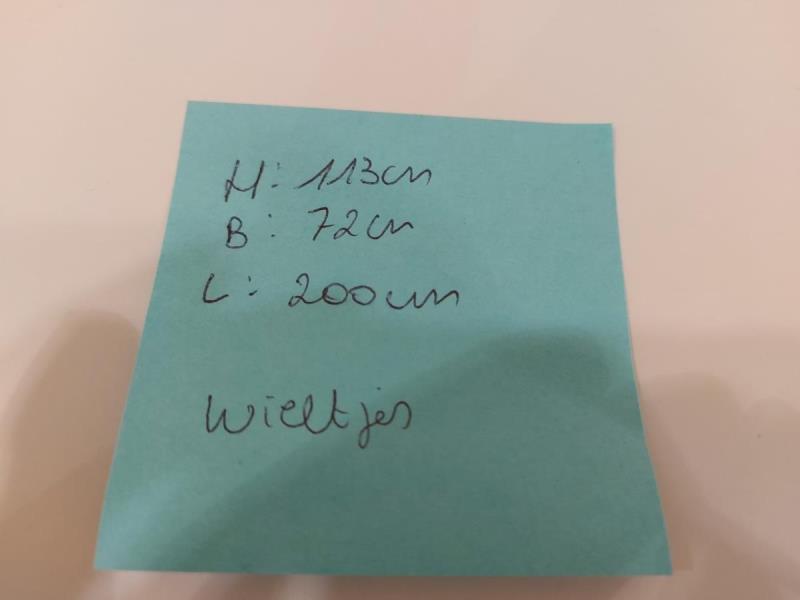 H: 113cm
B: 72cm
L: 200cm
Wieltjes